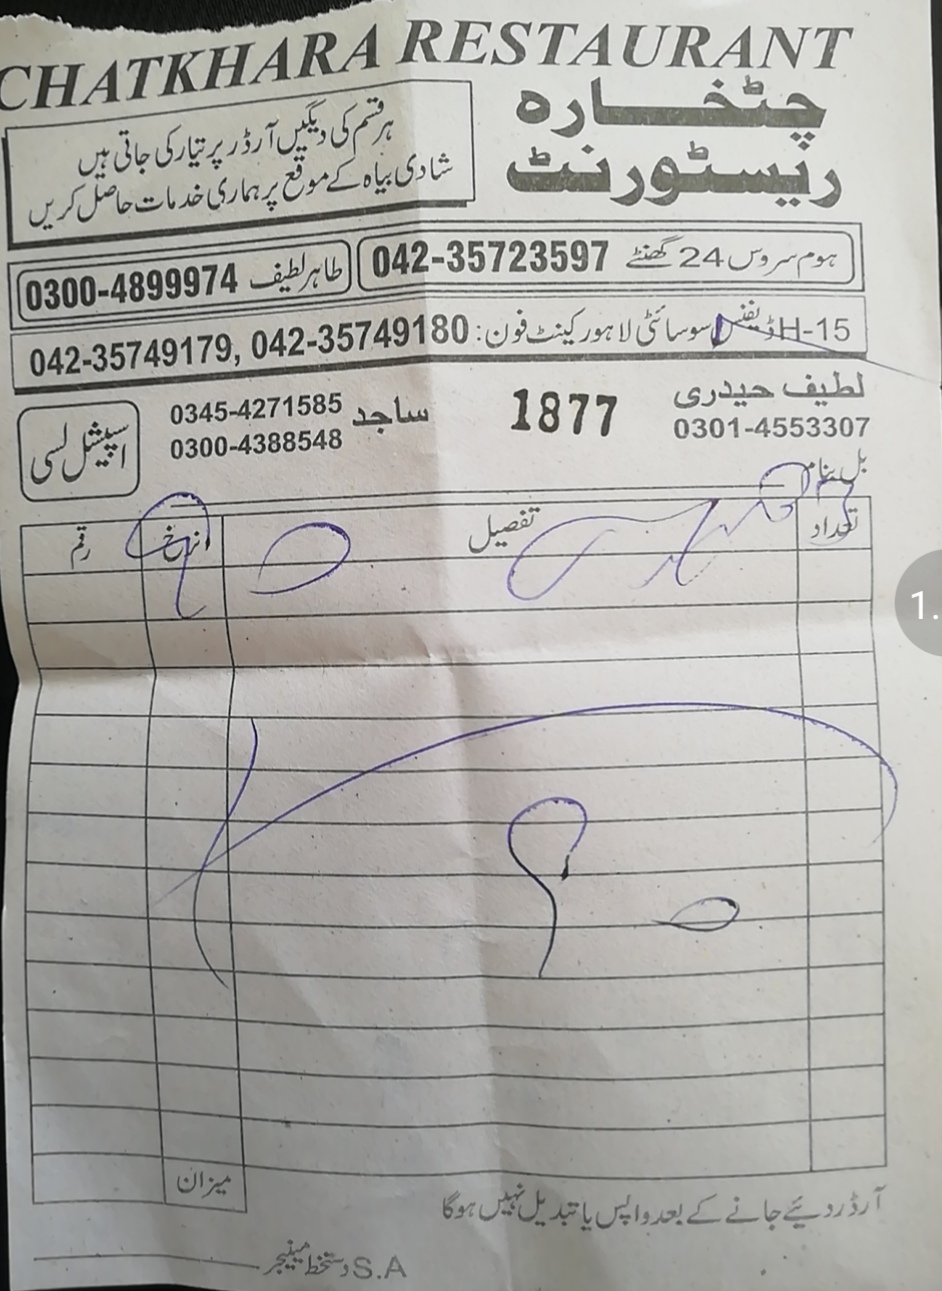 CHATKHARA RESTAURANT
چٹخارہ
ریسٹورنٹ
ہر قسم کی دیگیں آرڈر پر تیار کی جاتی ہیں
شادی بیاہ کے موقع پر ہماری خدمات حاصل کریں
ہوم سروس 24 گھنٹے 042-35723597
طاہر لطیف 0300-4899974
H-15 ڈیفنس سوسائٹی لاہور کینٹ فون: 042-35749179, 042-35749180
لطیف حیدری
0301-4553307
1877
ساجد 0345-4271585
0300-4388548
اسپیشل لسی
بل بنام
تعداد تفصیل نرخ رقم
میزان
آرڈر دئیے جانے کے بعد واپس یا تبدیل نہیں ہوگا
دستخط مینیجر S.A
1.